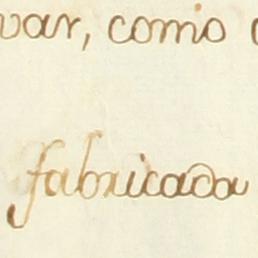 var, como
fabricada